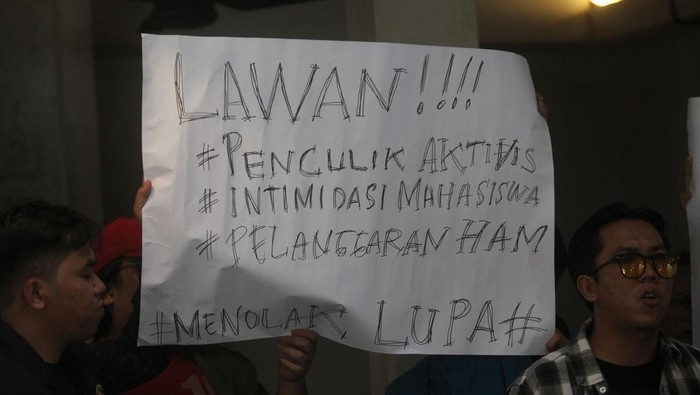 LAWAN!!!!
#PENCULIK AKTIVIS
#INTIMIDASI MAHASISWA
#PELANGGARAN HAM
#MENOLAK LUPA#